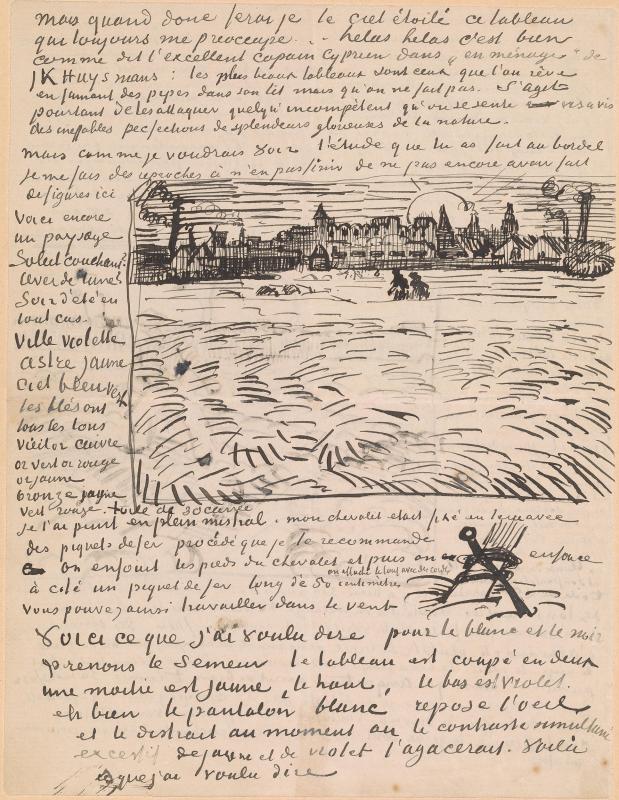 mais quand donc ferai je le ciel étoilé ce tableau
qui toujours me préoccupe.. helas helas c'est bien
comme dit l'excellent copain Cyprien dans „en ménage" de
J K Huysmans: les plus beaux tableaux sont ceux que l'on rêve
en fumant des pipes dans son lit mais qu'on ne fait pas. S'agit
pourtant de les attaquer quelqu'incompétent qu'on se sente vis a vis
des ineffables perfections de splendeurs glorieuses de la nature.
mais comme je voudrais voir l'étude que tu as fait au bordel
je me fais des reproches à n'en pas finir de ne pas encore avoir fait
de figures ici
Voici encore
un paysage
Soleil couchant?
lever de lune?
Soir d'été en
tout cas.
Ville violette
astre jaune
ciel bleu vert
les blés ont
tous les tons
vieil or cuivre
or vert or rouge
or jaune
bronze jaune
vert rouge. toile de 30 carrée
je l'ai peint en plein mistral. mon chevalet etait fixé en terre avec
des piquets de fer procédé que je te recommande
on enfouit les pieds du chevalet et puis on enfonce
à côté un piquet de fer long de 50 centimètres
on attache le tout avec des cordes
vous pouvez ainsi travailler dans le vent
Voici ce que j'ai voulu dire pour le blanc et le noir
prenons le Semeur le tableau est coupé en deux
une moitié est jaune, le haut, le bas est violet.
eh bien le pantalon blanc repose l'oeil
et le distrait au moment ou le contraste simultané
excessif de jaune et de violet l'agacerait. Voilà
ce que j'ai voulu dire